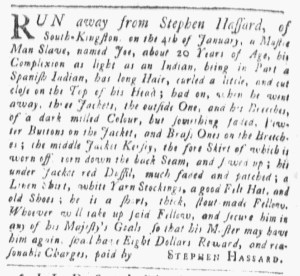 RUN away from Stephen Hassard, of
South-Kingston, on the 4th of January, a Mustee
Man Slave, named Joe, about 20 Years of Age, his
Complexion as light as an Indian, being in Part a
Spanish Indian, has long Hair, curled a little, and cut
close on the Top of his Head; had on, when he went
away, three Jackets, the outside One, and his Breeches
of a dark milled Colour, but something faded, Pew-
ter Buttons on the Jacket, and Brass Ones on the Breech-
es; the middle Jacket Kersey, the fore Skirt of which is
worn off, torn down the back Seam, and sewed up; his
under Jacket red Duffil, much faded and patched; a
Linen Shirt, white Yarn Stockings, a good Felt Hat, and
old Shoes; he is a short, thick, stout made Fellow.
Whoever will take up said Fellow, and secure him in
any of his Majesty's Goals so that his Master may have
him again, shall have Eight Dollars Reward, and rea-
sonable Charges, paid by STEPHEN HASSARD.